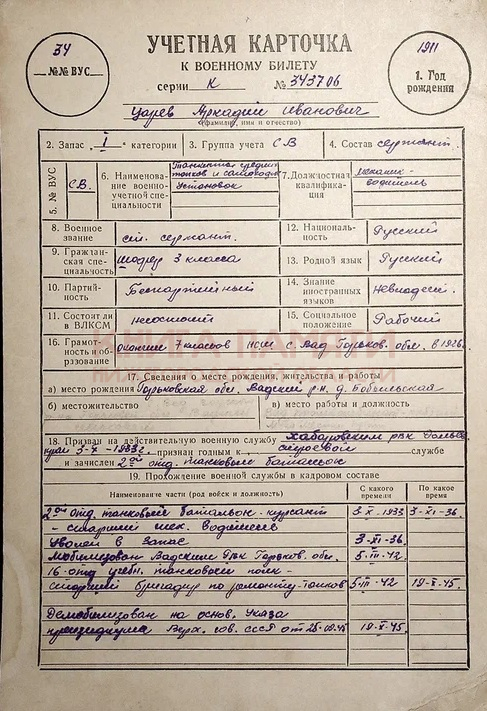 34
№№ ВУС
УЧЕТНАЯ КАРТОЧКА
К ВОЕННОМУ БИЛЕТУ
серии К № 343706
1911
1. Год
рождения
Царев Аркадий Иванович
(фамилия, имя и отчество)
2. Запас I категории
3. Группа учета СВ
4. Состав сержант.
5. № ВУС
СВ.
6. Наименова-
ние военно-
учетной спе-
циальности
танков и самоходн
установок
7. Должностная
квалифика-
ция
механик-
водитель
8. Военное
звание
ст. сержант.
12. Националь-
ность
Русский
9. Граждан-
ская спе-
циальность
шофер 3 класса
13. Родной язык
Русский
10. Партий-
ность
Беспартийный
14. Знание
иностранных
языков
11. Состоит ли
в ВЛКСМ
несостоит
15. Социальное
положение
Рабочий
16. Грамот-
ность и об-
разование
окончил 7 классов НСШ с. Вад Горьков. обл. в 1926г.
КНИГА ПАМЯТИ
17. Сведения о месте рождения, жительства и работы
а) место рождения Горьковская обл. Вадский р-н, д.
б) местожительство
в) место работы и должность
18. Призван на действительную военную службу Хабаровским рвк
5-X-1933г. признан годным к строевой службе
и зачислен 2ой отд. танковый батальон
19. Прохождение военной службы в кадровом составе
Наименование части (род войск и должность)
С какого
времени
По какое
время
2ой отд танковый батальон - курсант 3-X-1933 3-XI-36.
- старший мех. водитель
Уволен в запас 3-XI-36.
Мобилизован Вадским Рвк Горьков. обл. 5-III-42.
16 отд учебн. танковый полк -
старший бригадир по ремонту танков 5-III-42 19-X-45.
Демобилизован на основ. Указа
президиума Верх. сов. СССР от 25-09-45 19-X-45.